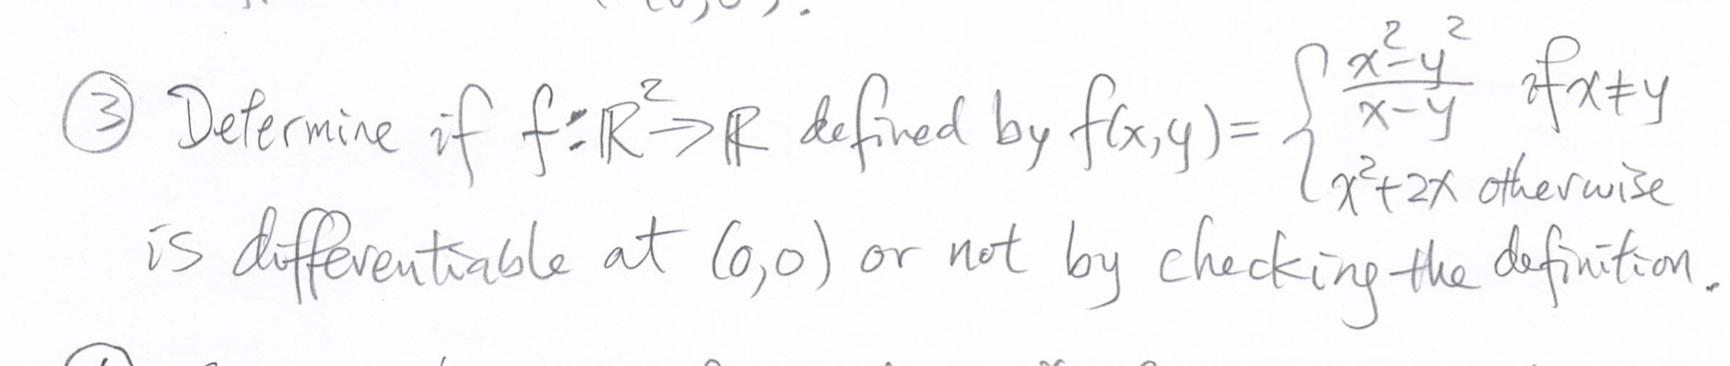 ③ Determine if f: ℝ²→ℝ defined by f(x,y)= { (x²-y²)/(x-y) if x≠y
x²+2x otherwise
is differentiable at (0,0) or not by checking the definition.